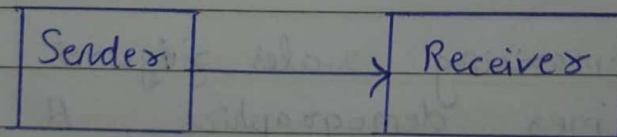 Sender
Receiver